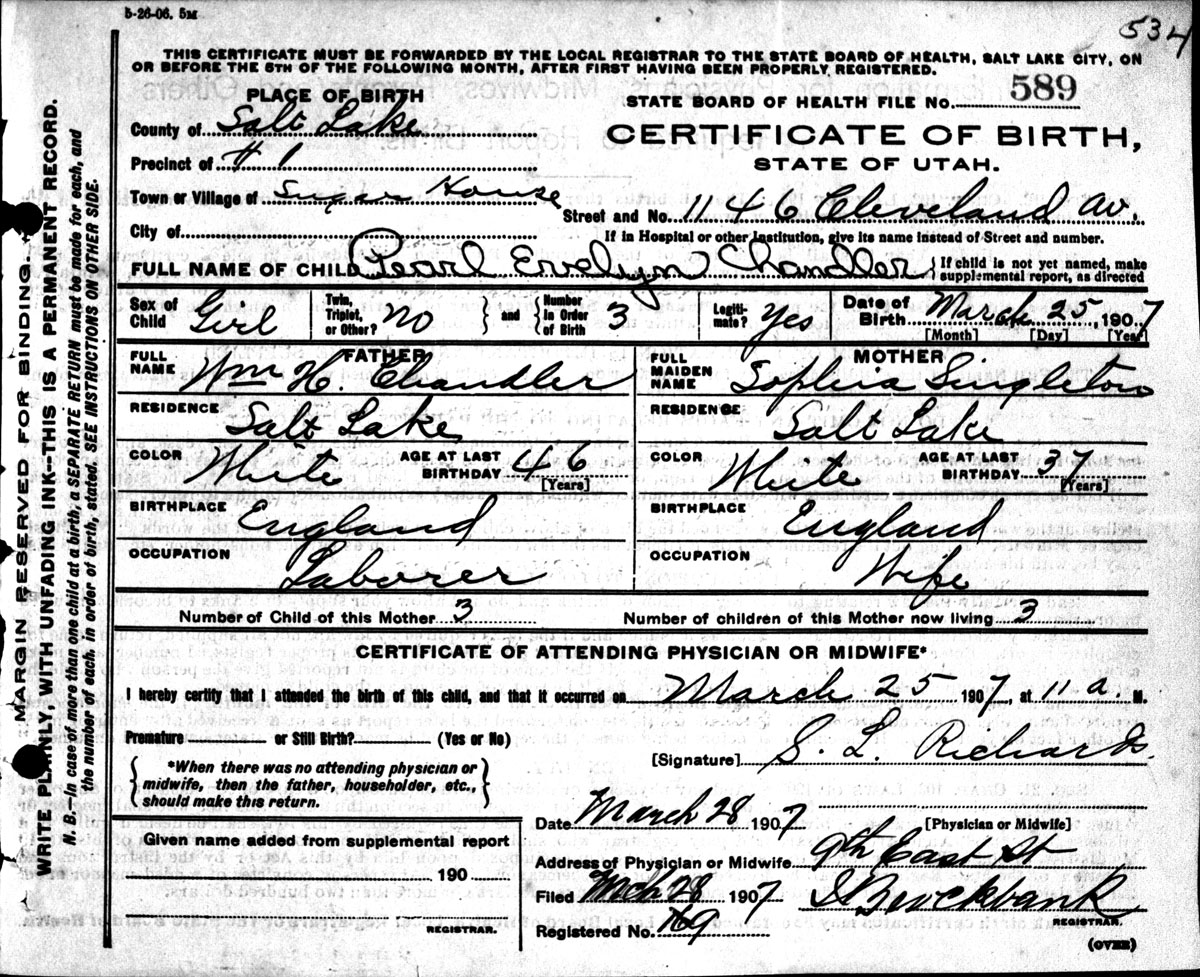 5-26-06. 5M
534
THIS CERTIFICATE MUST BE FORWARDED BY THE LOCAL REGISTRAR TO THE STATE BOARD OF HEALTH, SALT LAKE CITY, ON
OR BEFORE THE 5TH OF THE FOLLOWING MONTH, AFTER FIRST HAVING BEEN PROPERLY REGISTERED.
PLACE OF BIRTH
STATE BOARD OF HEALTH FILE No. 589
County of Salt Lake
CERTIFICATE OF BIRTH,
Precinct of # 1
STATE OF UTAH.
Town or Village of Sugar House
Street and No. 1146 Cleveland Av.
City of
If in Hospital or other Institution, give its name instead of Street and number.
FULL NAME OF CHILD Pearl Ervelyn Chandler
If child is not yet named, make
supplemental report, as directed
Sex of Child Girl
Twin, Triplet, or Other? No
and
Number in Order of Birth 3
Legiti- mate? Yes
Date of Birth March 25, 1907
[Month] [Day] [Year]
FATHER
FULL NAME Wm H. Chandler
MOTHER
FULL MAIDEN NAME Sophia Singleton
RESIDENCE Salt Lake
RESIDENCE Salt Lake
COLOR White AGE AT LAST BIRTHDAY 46 [Years]
COLOR White AGE AT LAST BIRTHDAY 37 [Years]
BIRTHPLACE England
BIRTHPLACE England
OCCUPATION Laborer
OCCUPATION Wife
Number of Child of this Mother 3
Number of children of this Mother now living 3
CERTIFICATE OF ATTENDING PHYSICIAN OR MIDWIFE*
I hereby certify that I attended the birth of this child, and that it occurred on March 25 1907, at 11 a. M.
Premature or Still Birth? (Yes or No)
[Signature] S. L. Richards
*When there was no attending physician or
midwife, then the father, householder, etc.,
should make this return.
Date March 28 1907
[Physician or Midwife]
Given name added from supplemental report
190
REGISTRAR.
Address of Physician or Midwife 9th East St
Filed Mch 28 1907
Brockbank
REGISTRAR.
Registered No. 169
(OVER)
MARGIN RESERVED FOR BINDING.
WRITE PLAINLY, WITH UNFADING INK--THIS IS A PERMANENT RECORD.
N. B.--In case of more than one child at a birth, a SEPARATE RETURN must be made for each, and
the number of each, in order of birth, stated. SEE INSTRUCTIONS ON OTHER SIDE.